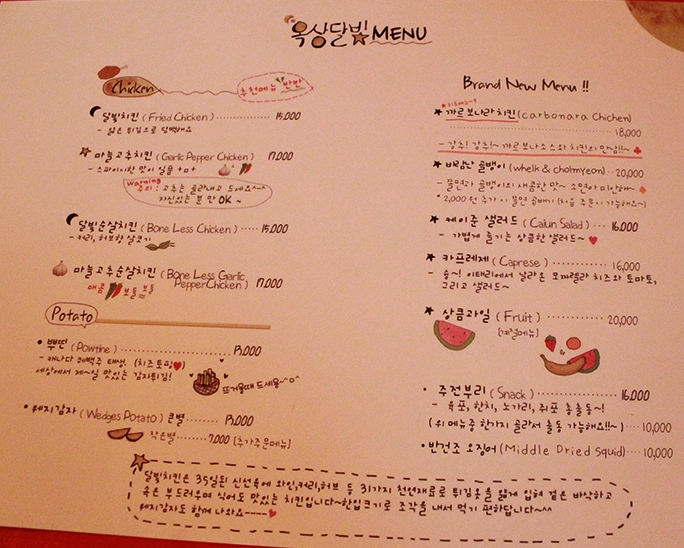 옥상달빛 MENU
Chicken
추천메뉴 반반
달빛치킨 (Fried Chicken) 15,000
- 얇은 튀김으로 담백해요
마늘고추치킨 (Garlic Pepper Chicken) 17,000
- 스파이시한 맛이 일품 +o+
warning
주의 : 고추는 골라내고 드세요~^^
자신있는 분만 OK ~
달빛순살치킨 (Bone Less Chicken) 15,000
- 커리, 허브향 살코기
마늘고추순살치킨 (Bone Less Garlic
Pepper Chicken) 17,000
매콤 보들 보들
Potato
뿌띤 (Powtine) 13,000
- 캐나다 퀘백주 태생. (치즈토핑♥)
세상에서 제~일 맛있는 감자튀김!
뜨거울때 드세용~^o^
웨지감자 (Wedges Potato) 큰별 13,000
작은별 7,000 [추가주문메뉴]
Brand New Menu !!
까르보나라치킨 (carbonara Chichen)
18,000
- 강추! 강추!~ 까르보나소스와 치킨의 만남!!~ ♣
바람난 골뱅이 (whelk & cholmyeon) 20,000
- 쫄면과 골뱅이의 새콤한 맛~ 소면아 미안해~ ♠
* 2,000원 추가 시 쫄면 곱빼기 (처음 주문시 가능해요~)
케이준 샐러드 (Cajun Salad) 16,000
- 가볍게 즐기는 상큼한 샐러드~ ♥
카프레제 (Caprese) 16,000
- 슝~! 이태리에서 날라온 모짜렐라 치즈와 토마토,
그리고 샐러드~
상큼과일 (Fruit) 20,000
[계절메뉴]
주전부리 (Snack) 16,000
- 육포, 한치, 노가리, 쥐포 총출동~!
(위 메뉴중 한가지 골라서 출동 가능해요!!~) 10,000
반건조 오징어 (Middle Dried Squid) 10,000
달빛치킨은 35일된 신선육에 와인,커리,허브 등 31가지 천연재료로 튀김옷을 얇게 입혀 겉은 바삭하고
속은 부드러우며 식어도 맛있는 치킨입니다~한입크기로 조각을 내서 먹기 편하답니다~^^
웨지감자도 함께 나와요----♥